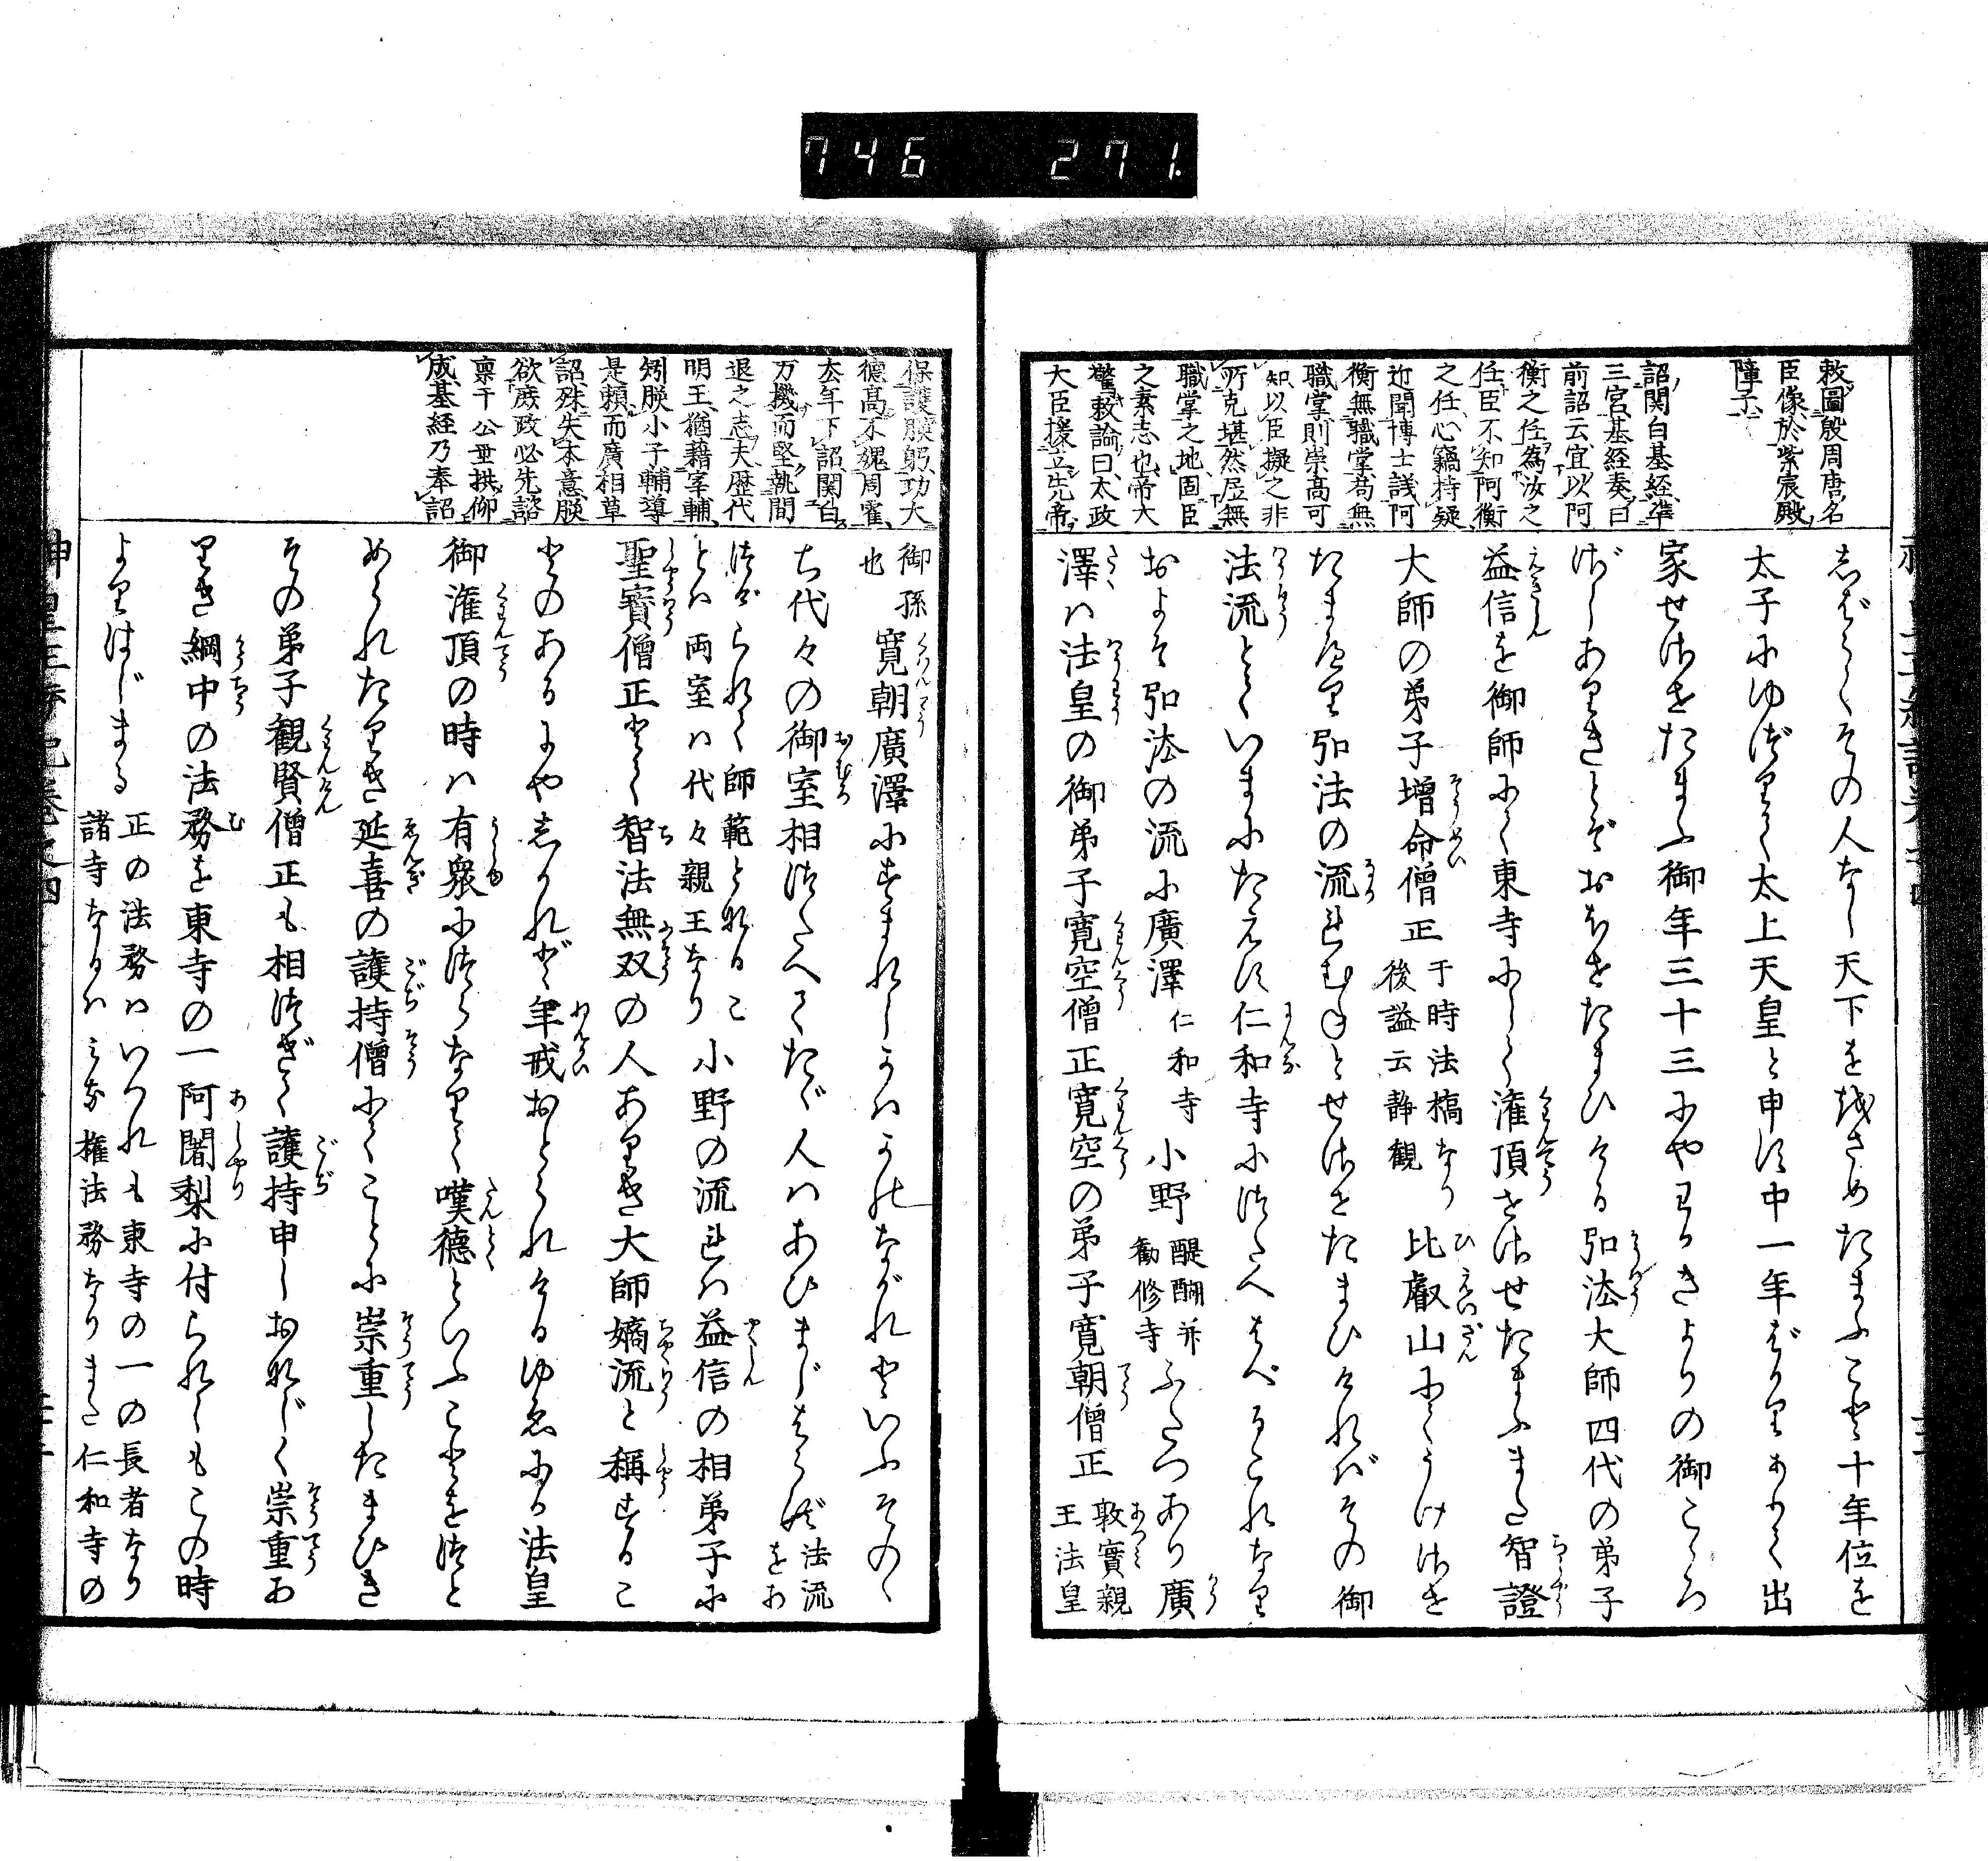 746 271.
敕圖殷周唐名
臣像於紫宸殿
障子
詔関白基経準
三宮基経奏曰
前詔云宜以阿
衡之任為汝之
任臣不知阿衡
之任心竊持疑
近聞博士議阿
衡無職掌苟無
職掌則崇高可
知以臣擬之非
所克堪然居無
職掌之地固臣
之素志也帝大
驚敕諭曰太政
大臣援立先帝
志ばらくその人なし天下を越さめたまふこと十年位を
太子にゆづりて太上天皇と申す中一年ばかりありて出
家せさせたまふ御年三十三にやわかきよりの御こころ
ざしありきとぞおほせたまひける弘法大師四代の弟子
益信を御師にて東寺にして潅頂せさせたまふまた智證
大師の弟子増命僧正
于時法橋なり
後謚云静観
比叡山にてうけさせ
たまへり弘法の流をむねとせさせたまひければその御
法流とていまにたえず仁和寺につたへはべるこれなり
およそ弘法の流に廣澤
仁和寺
小野
醍醐并
勧修寺
ふたつあり廣
澤は法皇の御弟子寛空僧正寛空の弟子寛朝僧正
敦實親
王法皇
保護朕躬功大
徳高不媿周霍
去年下詔関白
万機而堅執間
退之志夫歴代
明王猶藉宰輔
矧朕小子輔導
是頼而廣相草
詔殊失本意朕
欲庶政必先諮
稟于公垂拱仰
成基経乃奉詔
御孫
也
寛朝廣澤にすまれしかばかのながれといふそのゝ
ち代々の御室相つたへてたゞ人はあひまじはらず
法流
をあ
づけられて師範となること
とは両室は代々親王なり
小野の流は益信の相弟子に
聖寳僧正とて智法無双の人ありき大師嫡流と稱するこ
とのあるにやしかれど年戒おとられけるゆゑにか法皇
御潅頂の時は有衆につらなりて嘆徳といふことをつと
められたりき延喜の護持僧にてことに崇重したまひき
その弟子観賢僧正も相つぎて護持申しおなじく崇重あ
りき綱中の法務を東寺の一阿闍梨に付られしもこの時
よりはじまる
正の法務はいつれも東寺の一の長者なり
諸寺なるはみな権法務なりまた仁和寺の